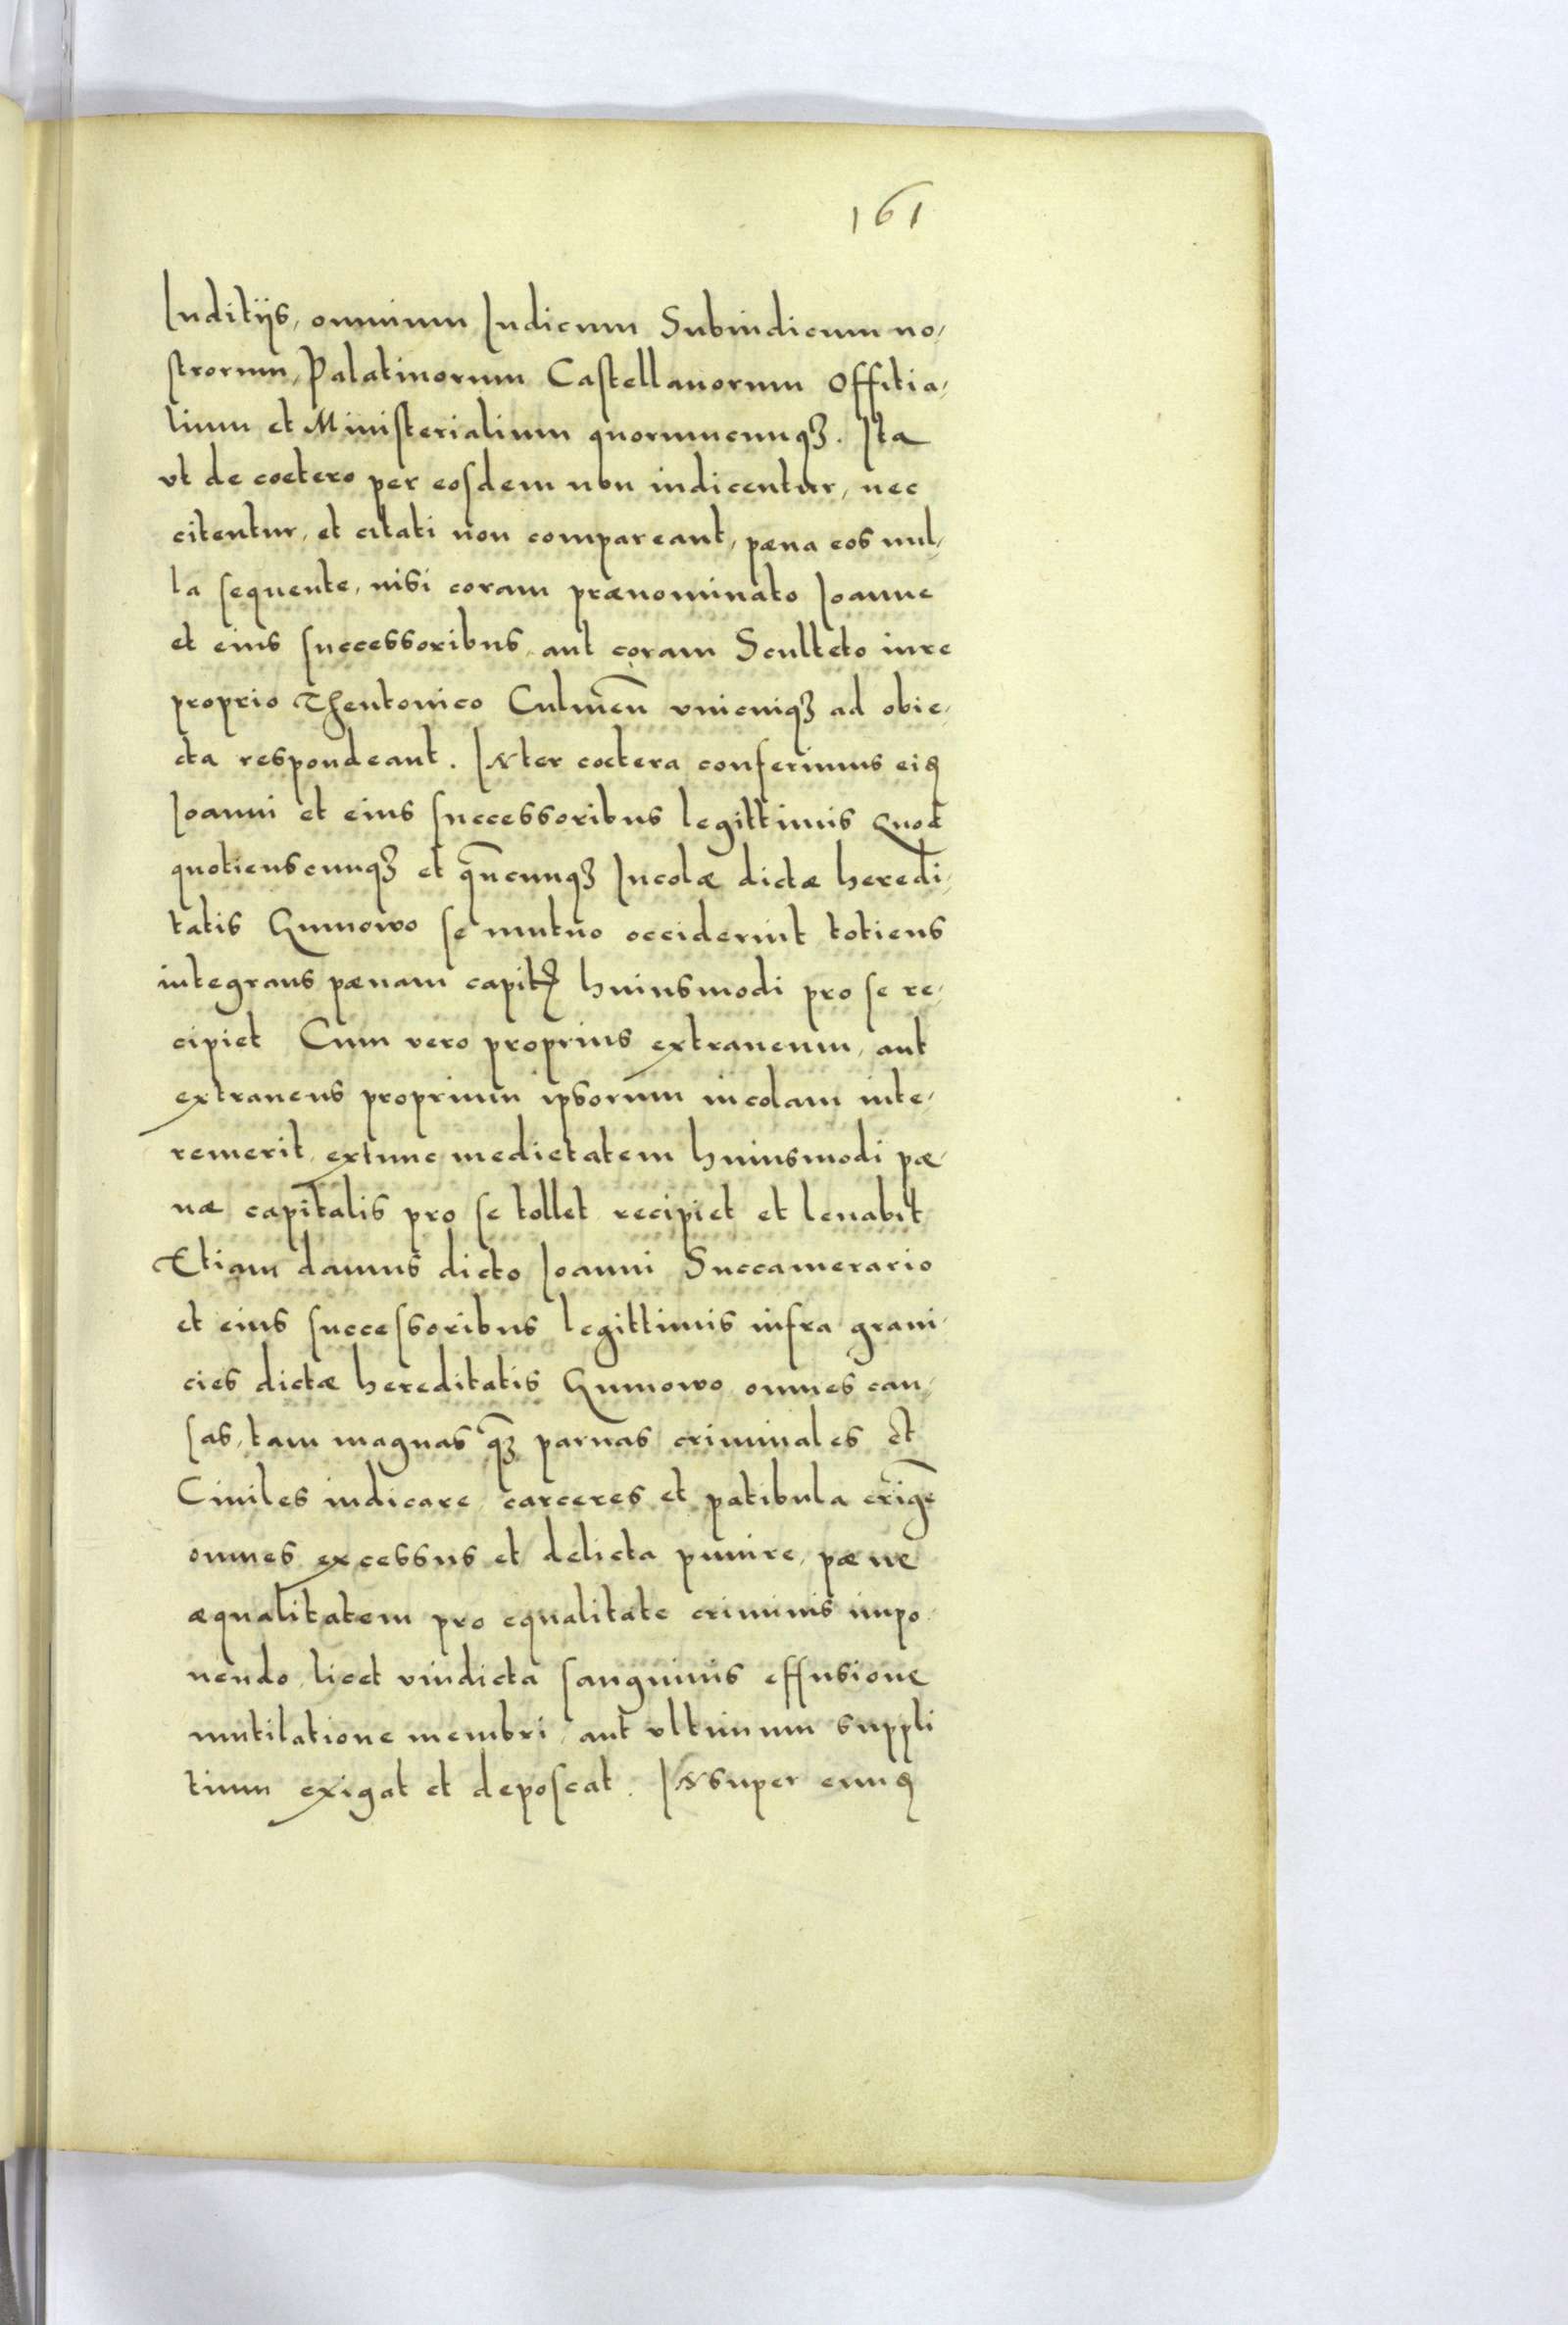 161
Iuditijs, omnium Iudicum Subiudicum no,
strorum, Palatinorum Castellanorum Offitia,
lium et Ministerialium quorumcunqꝫ. Ita
vt de coetero per eosdem non iudicentur, nec
citentur, et citati non compareant, pæna eos nul,
la sequente, nisi coram prænominato Ioanne
et eius successoribus aut coram Sculteto iure
proprio Theutonico Culmeñ vnicuiqꝫ ad obie,
cta respondeant. INter coetera conferimus eiꝰ
Ioanni et eius successoribus legittimis Quod
quotienscunqꝫ et qn̄cunqꝫ Incolæ dictæ heredi,
tatis Gumowo se mutuo occiderint totiens
integrans pænam capitꝭ huiusmodi pro se re,
cipiet Cum vero proprius extraneum, aut
extraneus proprium ipsorum incolam inte,
remerit, extunc medietatem huiusmodi pæ,
næ capitalis pro se tollet recipiet et leuabit
Etiam damus dicto Ioanni Succamerario
et eius successoribus legittimis infra grani,
cies dictæ hereditatis Gumowo omnes cau,
sas, tam magnas qꝫ̃ paruas criminales et
Ciuiles iudicare carceres et patibula erigē
omnes excessus et delicta punire, pæne
æqualitatem pro equalitate criminis impo,
nendo, licet vindicta sanguinis effusione
mutilatione membri, aut vltimum suppli
tium exigat et deposcat. INsuper eumꝰ